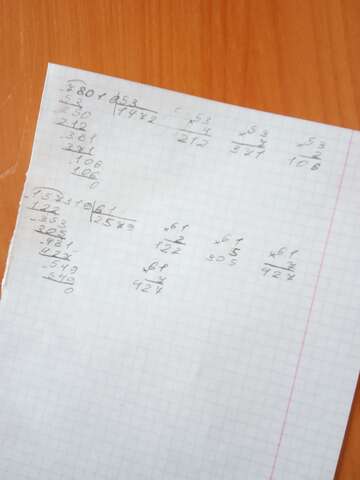 78016 53
53 1472
250
212
381
371
106
106
0
×53
4
212
×53
7
371
×53
2
106
157319 61
122 2579
353
305
481
427
549
549
0
×61
2
122
×61
5
305
×61
7
427
×61
7
427